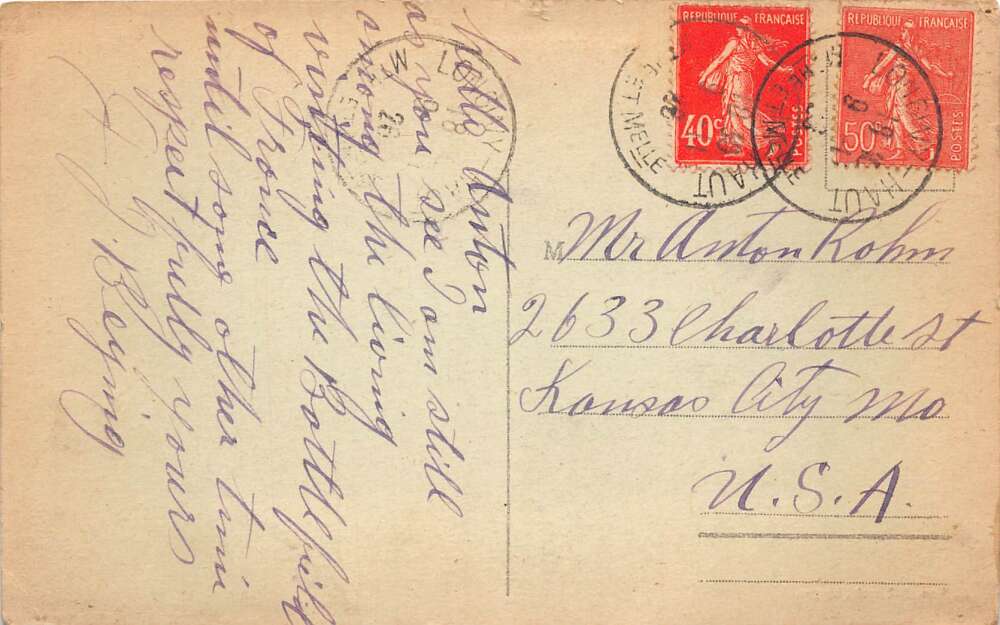 Hello Anton
as you see I am still
among the living
visiting the Battlefield
of France
until some other time
respectfully yours
Beying
REPUBLIQUE FRANÇAISE
40c
POSTES
REPUBLIQUE FRANÇAISE
50c
POSTES
ET MELLE
M Mr Anton Rohm
2633 Charlotte st
Kansas City Mo
U.S.A.